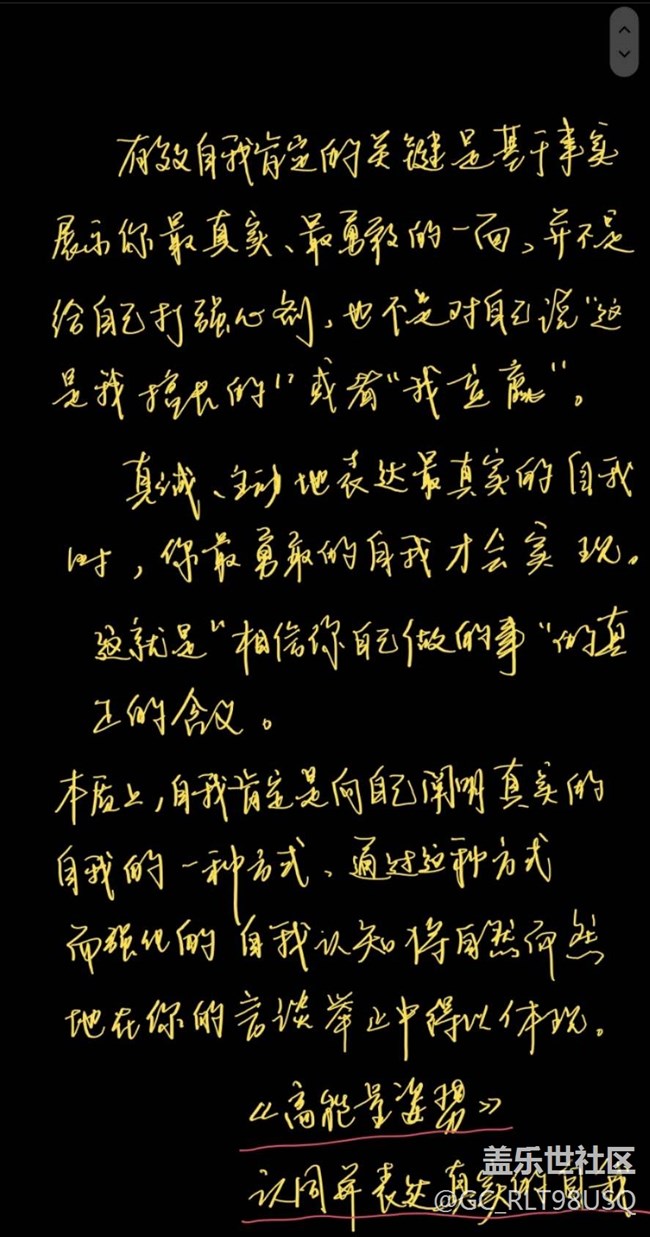 有效自我肯定的关键是基于事实
展示你最真实、最勇敢的一面,并不是
给自己打强心剂,也不是对自己说“这
是我擅长的”或者“我应赢”。
真诚、主动地表达最真实的自我
时,你最勇敢的自我才会实现。
这就是“相信你自己做的事”的真
正的含义。
本质上,自我肯定是向自己阐明真实的
自我的一种方式、通过这种方式
而强化的自我认知将自然而然
地在你的言谈举止中得以体现。
《高能量姿势》
认同并表达真实的自我
盖乐世社区
@GC_RLT98USO